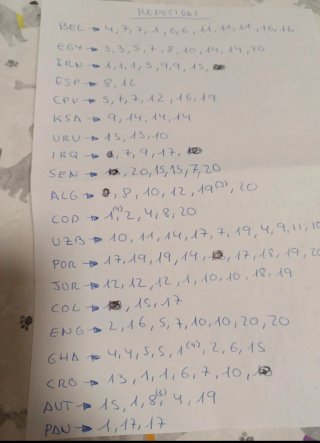 REPETIDAS
BEL → 4, 7, 7, 1, 6, 6, 11, 11, 11, 16, 16
EGY → 3, 3, 5, 7, 8, 10, 14, 14, 20
IRN → 1, 1, 1, 3, 9, 9, 15,
ESP → 8, 12
CPV → 5, 7, 7, 12, 16, 19
KSA → 9, 14, 14, 14
URU → 15, 13, 10
IRQ → 7, 9, 17,
SEN → 20, 15, 15, 7, 20
ALG → 8, 10, 12, 19(3), 20
COD → 1(4), 2, 4, 8, 20
UZB → 10, 11, 14, 17, 7, 19, 4, 9, 11, 10
POR → 17, 19, 19, 14, 17, 18, 19, 20
JOR → 12, 12, 12, 1, 10, 10, 18, 19
COL → 15, 17
ENG → 2, 16, 5, 7, 10, 10, 20, 20
GHA → 4, 4, 5, 5, 1(4), 2, 6, 15
CRO → 13, 1, 1, 6, 7, 10,
AUT → 15, 1, 8(3), 4, 19
PAN → 1, 17, 17